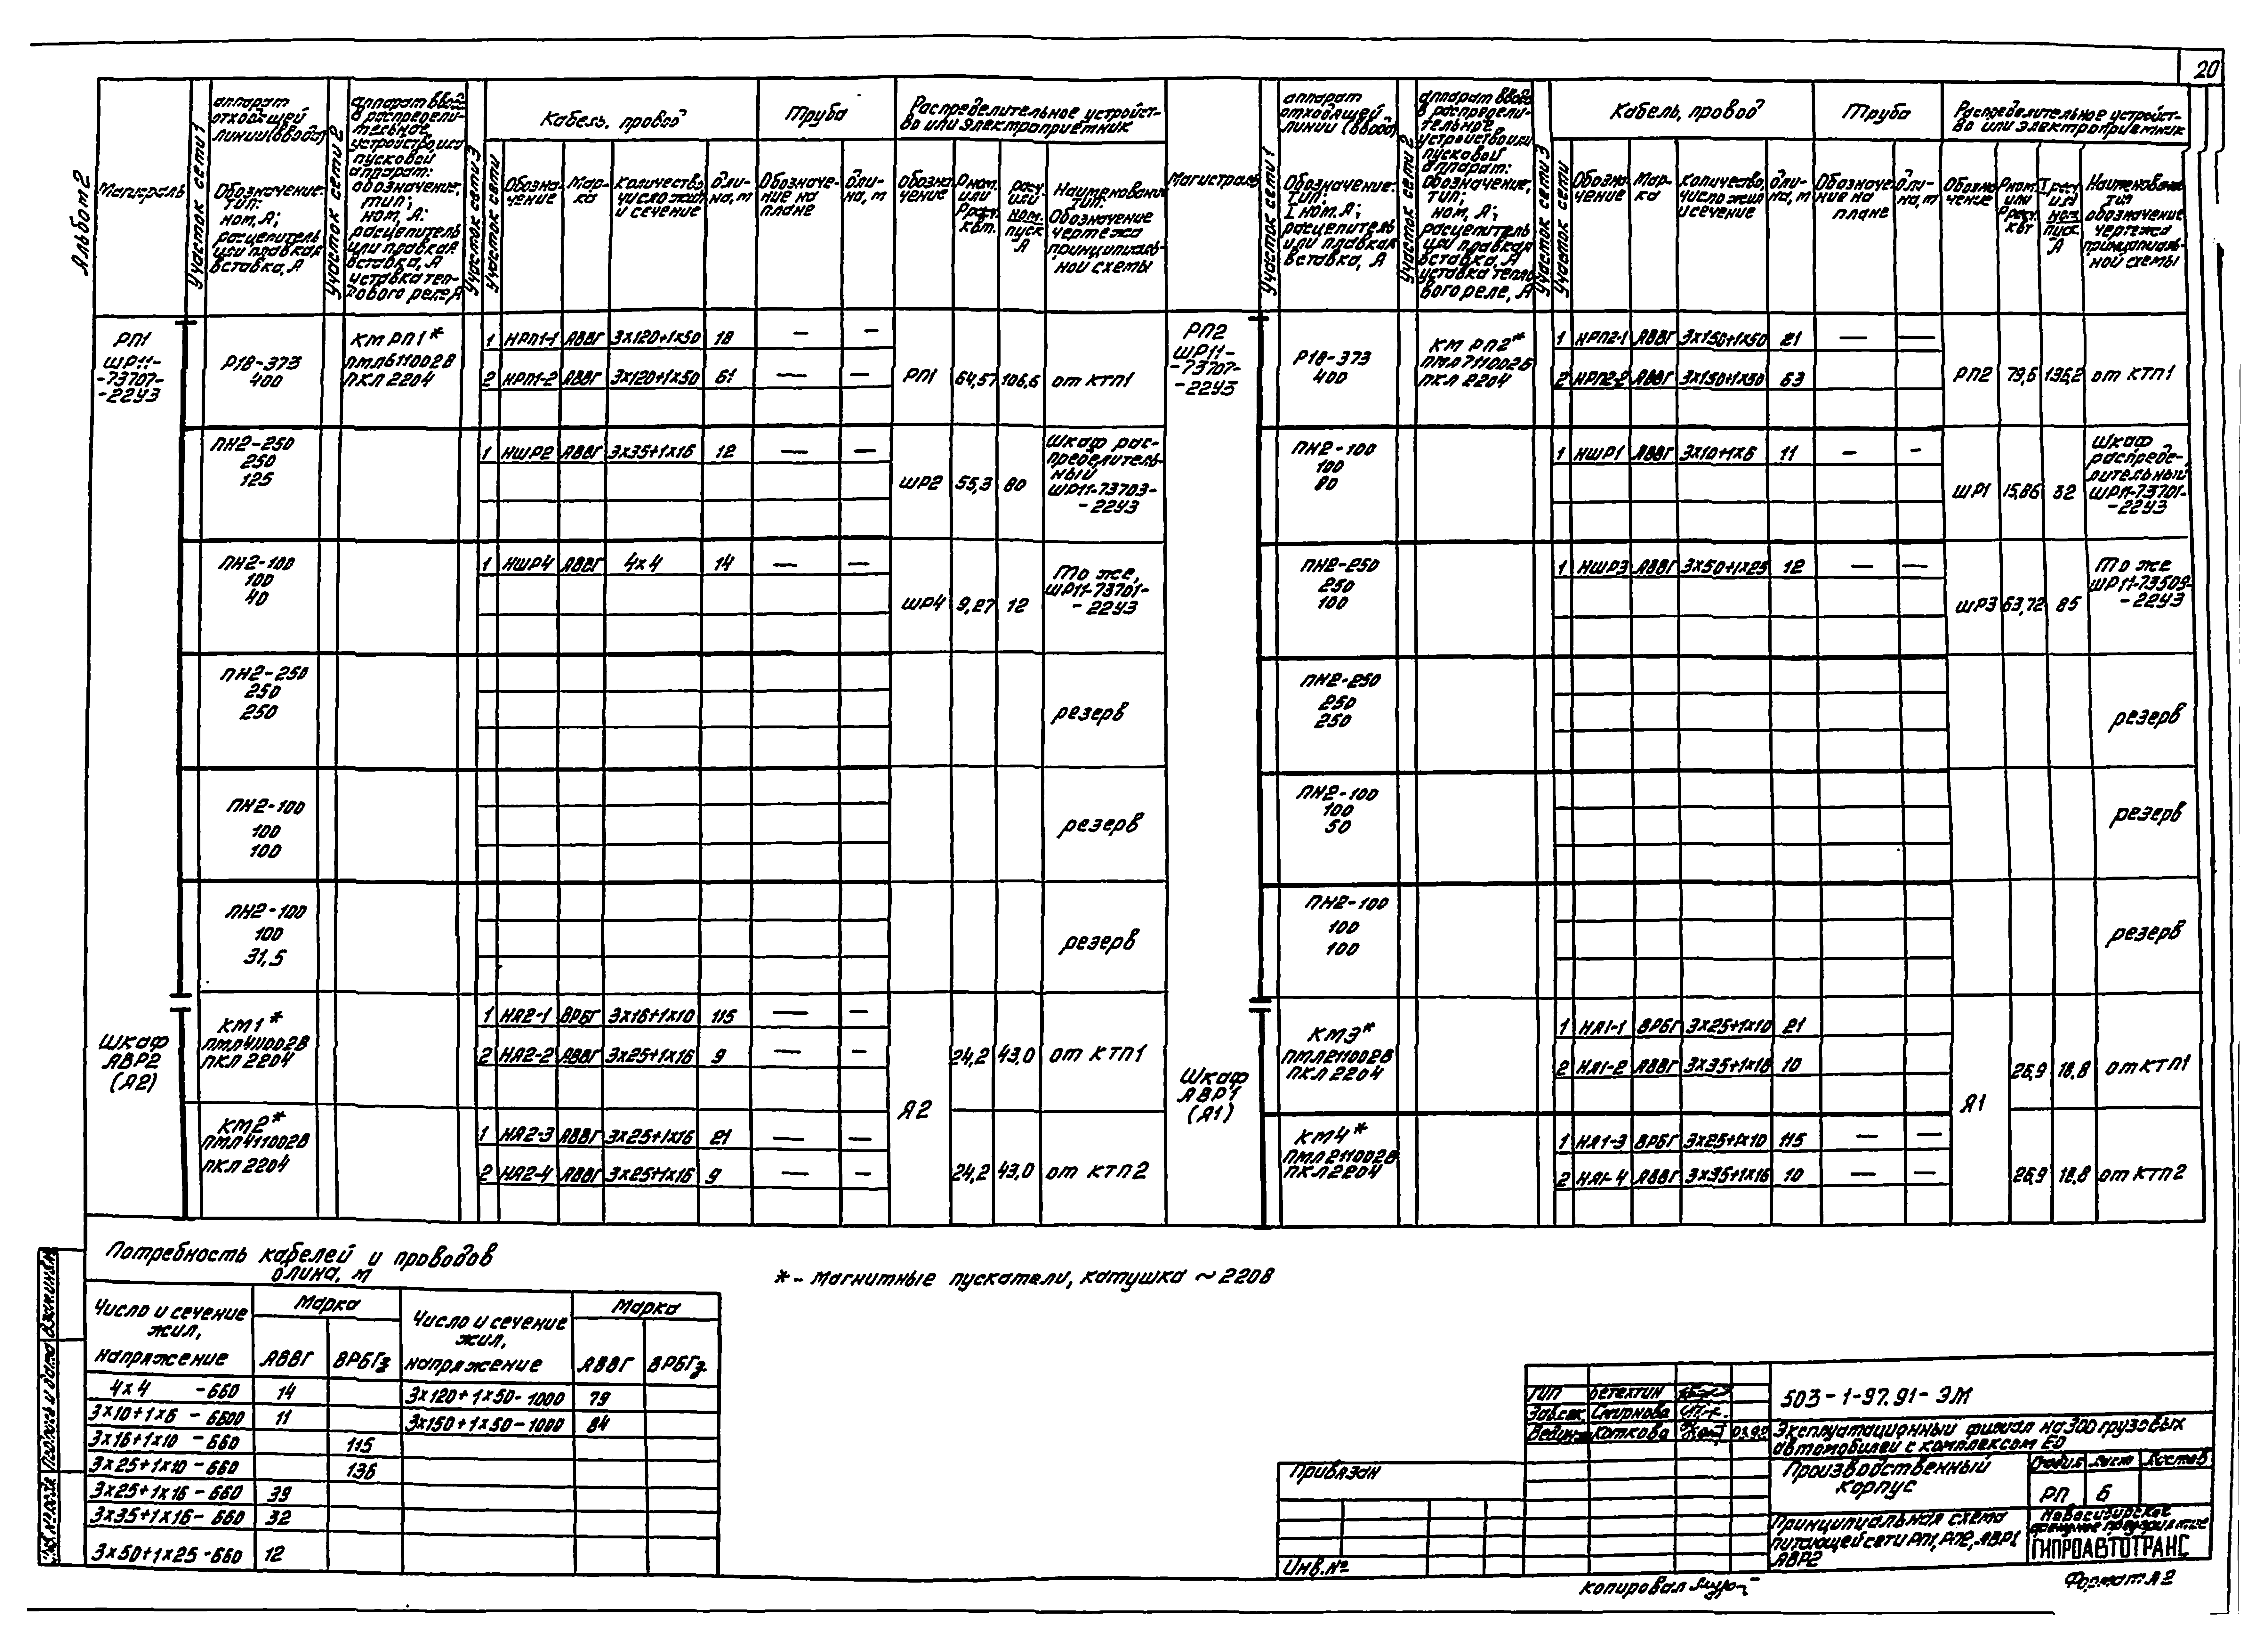 20
Альбом 2
Магистраль
Участок сети 1
Аппарат отходящей линии (ввода)
Обозначение: тип: ном, А; расцепитель или плавкая вставка, А
Участок сети 2
Аппарат ввода в распределительное устройство или пусковой аппарат: обозначение, тип; ном, А; расцепитель или плавкая вставка, А уставка теплового реле, А
Участок сети 3
Участок сети
Кабель, провод
Обозначение
Марка
Количество, число жил и сечение
Длина, м
Труба
Обозначение на плане
Длина, м
Распределительное устройство или электроприемник
Обозначение
Рном. или Ррасч. кВт.
Iрасч. или Iном. Iпуск А
Наименование тип: Обозначение чертежа принципиальной схемы
РП1
ШР11-
-73707-
-22У3
Р18-373
400
КМ РП1*
ПМЛ611002В
ПКЛ 2204
1 НРП1-1 АВВГ 3х120+1х50 18 — —
2 НРП1-2 АВВГ 3х120+1х50 61 — —
РП1 64,57 106,6 от КТП1
ПН2-250
250
125
1 НШР2 АВВГ 3х35+1х16 12 — —
ШР2 55,3 80
Шкаф рас-
пределитель-
ный
ШР11-73703-
-22У3
ПН2-100
100
40
1 НШР4 АВВГ 4х4 14 — —
ШР4 9,27 12
То же,
ШР11-73701-
-22У3
ПН2-250
250
250
резерв
ПН2-100
100
100
резерв
ПН2-100
100
31,5
резерв
Шкаф
АВР2
(А2)
КМ1*
ПМЛ411002В
ПКЛ 2204
1 НА2-1 ВРБГ 3х16+1х10 115 — —
2 НА2-2 АВВГ 3х25+1х16 9 — —
24,2 43,0 от КТП1
А2
КМ2*
ПМЛ411002В
ПКЛ 2204
1 НА2-3 АВВГ 3х25+1х16 21 — —
2 НА2-4 АВВГ 3х25+1х16 9 — —
24,2 43,0 от КТП2
Магистраль
Участок сети 1
Аппарат отходящей линии (ввода)
Обозначение: тип; Iном, А; расцепитель или плавкая вставка, А
Участок сети 2
Аппарат ввода в распределительное устройство или пусковой аппарат: обозначение, тип; ном, А; расцепитель или плавкая вставка, А уставка теплового реле, А
Участок сети 3
Участок сети
Кабель, провод
Обозначение
Марка
Количество, число жил и сечение
Длина, м
Труба
Обозначение на плане
Длина, м
Распределительное устройство или электроприемник
Обозначение
Рном или Ррасч. кВт
Iрасч или Iном Iпуск А
Наименование тип обозначение чертежа принципиальной схемы
РП2
ШР11-
-73707-
-22У3
Р18-373
400
КМ РП2*
ПМЛ711002В
ПКЛ 2204
1 НРП2-1 АВВГ 3х150+1х50 21 — —
2 НРП2-2 АВВГ 3х150+1х50 63
РП2 79,6 136,2 от КТП1
ПН2-100
100
80
1 НШР1 АВВГ 3х10+1х6 11 — —
ШР1 15,86 32
Шкаф
распреде-
лительный
ШР11-73701-
-22У3
ПН2-250
250
100
1 НШР3 АВВГ 3х50+1х25 12 — —
ШР3 63,72 85
То же
ШР11-73509-
-22У3
ПН2-250
250
250
резерв
ПН2-100
100
50
резерв
ПН2-100
100
100
резерв
Шкаф
АВР1
(А1)
КМ3*
ПМЛ211002В
ПКЛ 2204
1 НА1-1 ВРБГ 3х25+1х10 21
2 НА1-2 АВВГ 3х35+1х16 10
26,9 18,8 от КТП1
А1
КМ4*
ПМЛ211002В
ПКЛ 2204
1 НА1-3 ВРБГ 3х25+1х10 115 — —
2 НА1-4 АВВГ 3х35+1х16 10 — —
26,9 18,8 от КТП2
Потребность кабелей и проводов
длина, м
Число и сечение жил, напряжение Марка АВВГ ВРБГз
Число и сечение жил, напряжение Марка АВВГ ВРБГз
4х4 -660 14
3х10+1х6 - 6600 11
3х16+1х10 -660 115
3х25+1х10 -660 136
3х25+1х16 -660 39
3х35+1х16 - 660 32
3х50+1х25 -660 12
3х120+1х50-1000 79
3х150+1х50-1000 84
*- Магнитные пускатели, катушка ~220В
Взам.инв.№
Подпись и дата
Инв.№ подл.
Привязан
Инв.№
ГИП Бетехтин
Зав.сек. Смирнова
Вед.инж. Коткова 03.92
503-1-97.91-ЭМ
Эксплуатационный филиал на 300 грузовых
автомобилей с комплексом ЕО
Производственный
корпус
Стадия Лист Листов
РП 6
Принципиальная схема
питающей сети РП1, РП2, АВР1,
АВР2
Новосибирское
ГИПРОАВТОТРАНС
Копировал
Формат А2